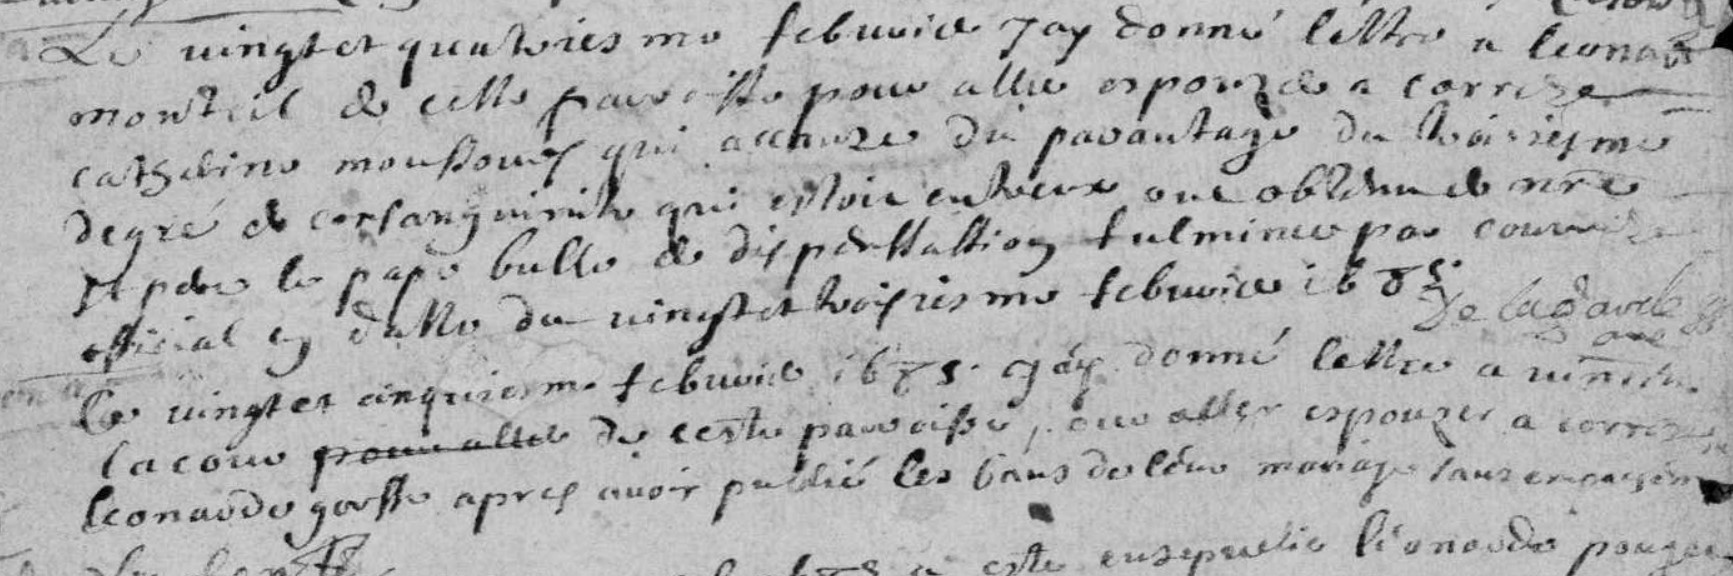 Le vingt et quatriesme febvrier Jay donné lettre a leonard
monteil de cette parroisse pour aller espouzer a correze
catherine moussours qui a cauze du parantage du troisiesme
degré de consanguinité qui estoit entreux ont obtenu de nre
st pere le pape bulle de dispensassion fulminee par
official en datte du vingt et troisiesme febvrier 1685.
De lagarde
Le vingt et cinquiesme febvrier 1685. Jay donné lettre a
lacour pour aller de ceste parroisse, pour aller espouzer a correze
leonarde gorsse apres avoir publié les bans de leur mariage sans
a este ensepvelie léonarde